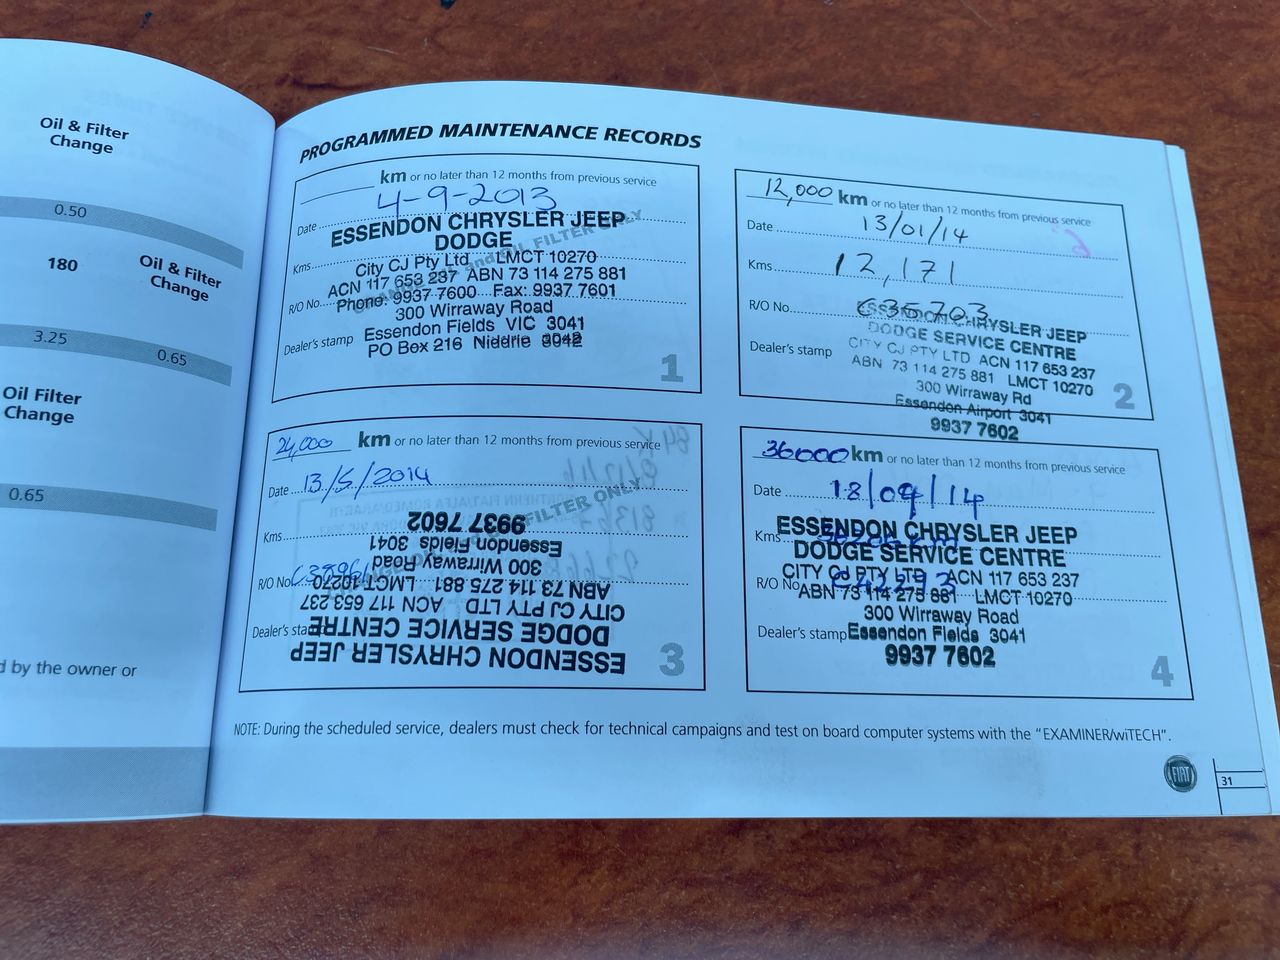 Oil & Filter
Change
0.50
180
Oil & Filter
Change
3.25
0.65
Oil Filter
Change
0.65
d by the owner or
PROGRAMMED MAINTENANCE RECORDS
km or no later than 12 months from previous service
Date 4-9-2013
ESSENDON CHRYSLER JEEP
DODGE
OIL FILTER ONLY
Kms
City CJ Pty Ltd LMCT 10270
ACN 117 653 237 ABN 73 114 275 881
R/O No. Phone: 9937 7600 Fax: 9937 7601
300 Wirraway Road
Dealer's stamp Essendon Fields VIC 3041
PO Box 216 Niddrie 3042
1
12,000 km or no later than 12 months from previous service
Date 13/01/14
Kms 12,171
R/O No. C35703
ESSENDON CHRYSLER JEEP
DODGE SERVICE CENTRE
Dealer's stamp
CITY CJ PTY LTD ACN 117 653 237
ABN 73 114 275 881 LMCT 10270
300 Wirraway Rd
Essendon Airport 3041
9937 7602
2
24,000 km or no later than 12 months from previous service
Date 13/5/2014
FILTER ONLY
Kms
R/O No.
Dealer's stamp
ESSENDON CHRYSLER JEEP
DODGE SERVICE CENTRE
CITY CJ PTY LTD ACN 117 653 237
ABN 73 114 275 881 LMCT 10270
300 Wirraway Road
Essendon Fields 3041
9937 7602
3
36000 km or no later than 12 months from previous service
Date 18/09/14
ESSENDON CHRYSLER JEEP
Kms
DODGE SERVICE CENTRE
CITY CJ PTY LTD ACN 117 653 237
R/O No. C42293
ABN 73 114 275 881 LMCT 10270
300 Wirraway Road
Dealer's stamp Essendon Fields 3041
9937 7602
4
NOTE: During the scheduled service, dealers must check for technical campaigns and test on board computer systems with the "EXAMINER/wiTECH".
FIAT
31